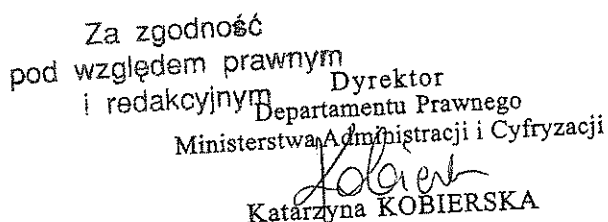 Za zgodność
pod względem prawnym
i redakcyjnym
Dyrektor
Departamentu Prawnego
Ministerstwa Administracji i Cyfryzacji
Kobierska
Katarzyna KOBIERSKA